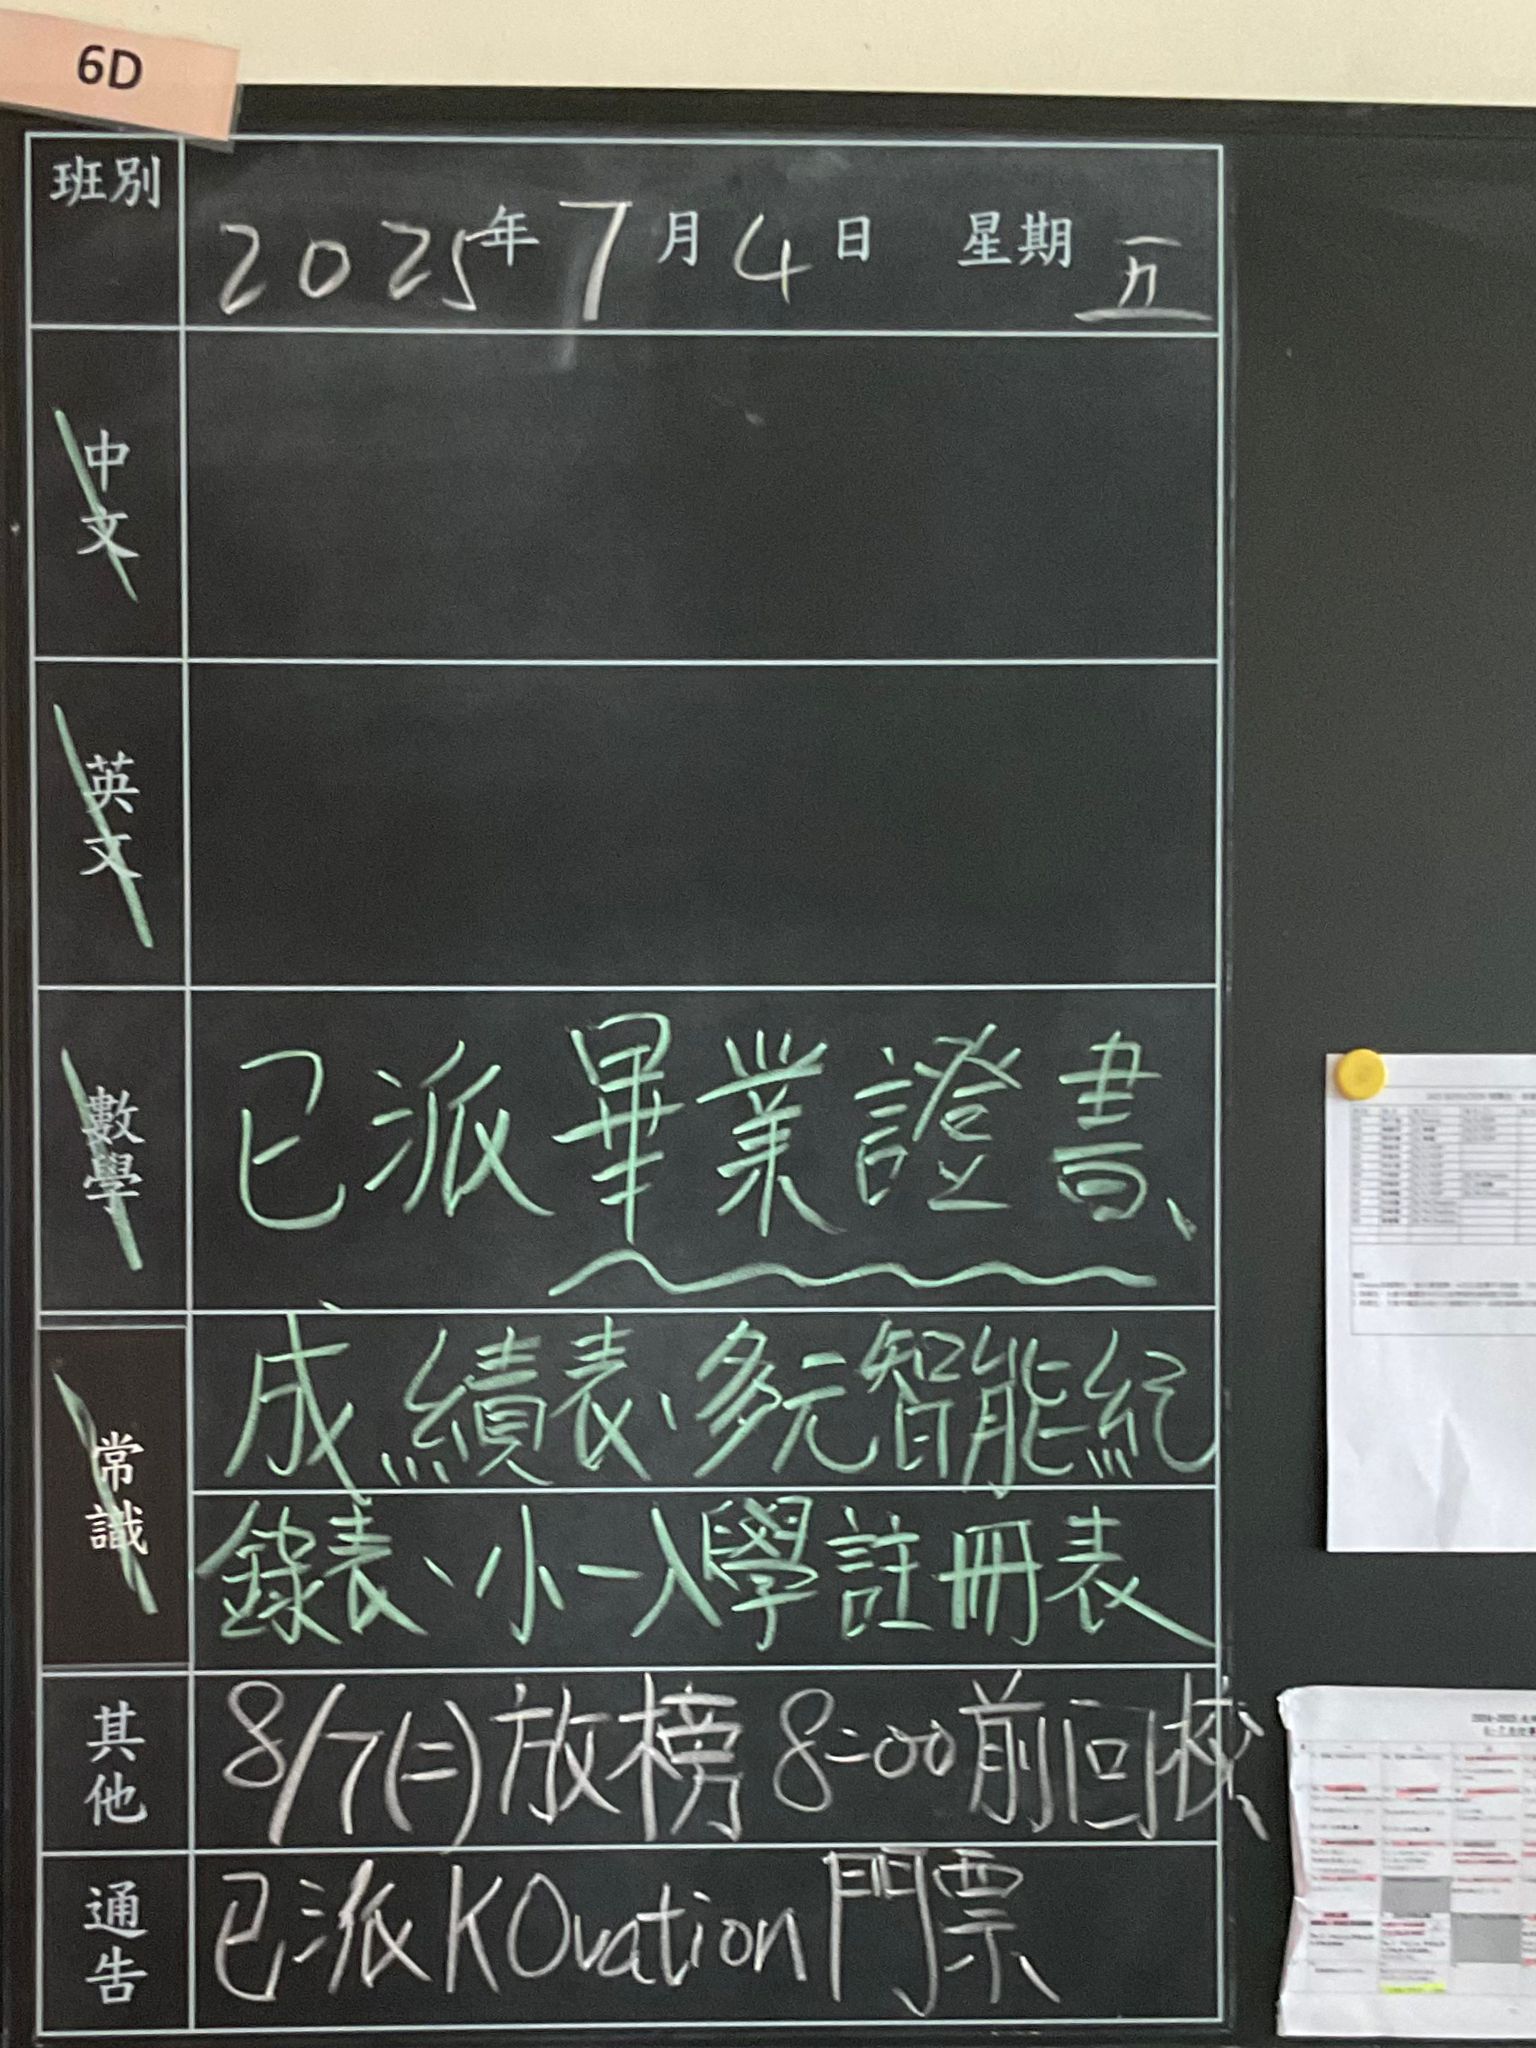 6D
班別
2025年7月4日 星期五
中文
英文
數學
已派畢業證書、
常識
成績表、多元智能紀
錄表、小一入學註冊表
其他
8/7(二)放榜 8:00前回校
通告
已派KOvation門票